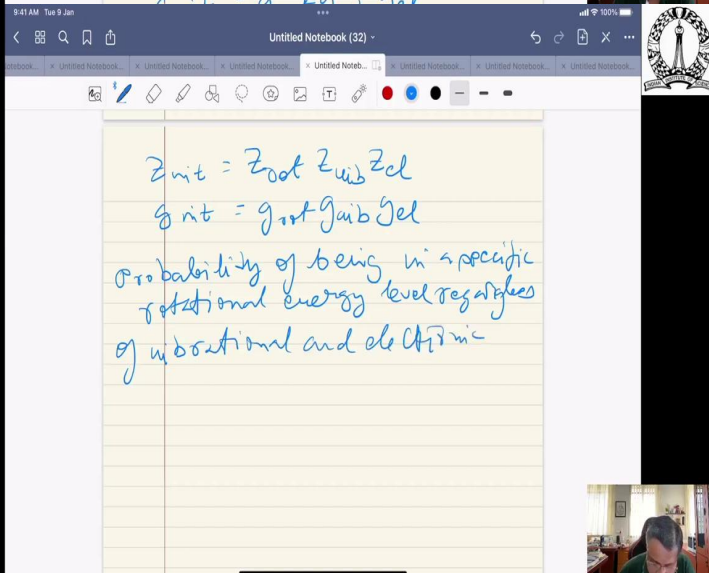 9:41 AM Tue 9 Jan
100%
Untitled Notebook (32)
Untitled Notebook...
Untitled Notebook...
Untitled Notebook...
Untitled Noteb...
Untitled Notebook...
Untitled Notebook...
Untitled Notebook...
Z int = Z rot Z vib Z el
g int = g rot g vib g el
Probability of being in a specific
rotational energy level regardless
of vibrational and electronic